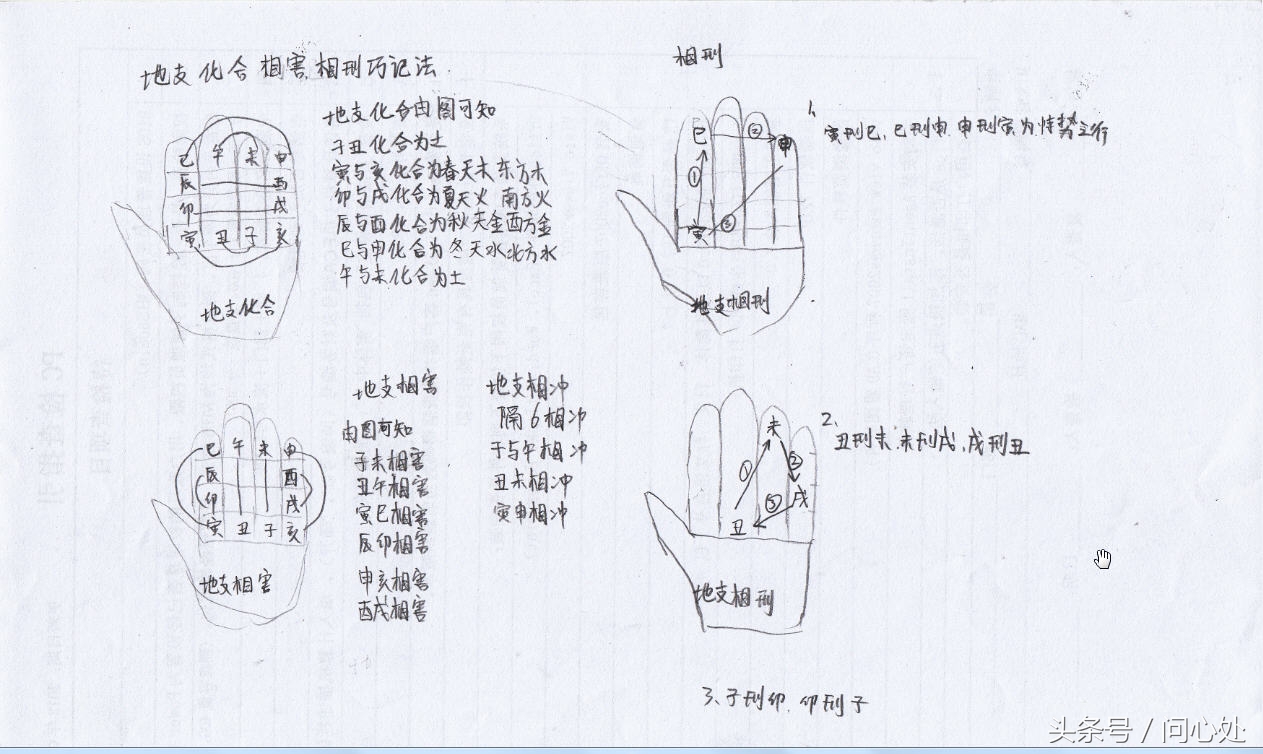 地支化合相害相刑巧记法
地支化合由图可知
子丑化合为土
寅与亥化合为春天木东方木
卯与戌化合为夏天火 南方火
辰与酉化合为秋天金西方金
巳与申化合为冬天水北方水
午与未化合为土
巳 午 未 申
辰 酉
卯 戌
寅 丑 子 亥
地支化合
相刑
1、
寅刑巳、巳刑申、申刑寅为恃势之行
巳 ② 申
①
寅 ③
地支相刑
地支相害
由图可知
子未相害
丑午相害
寅巳相害
辰卯相害
申亥相害
酉戌相害
巳 午 未 申
辰 酉
卯 戌
寅 丑 子 亥
地支相害
地支相冲
隔6相冲
子与午相冲
丑未相冲
寅申相冲
2、
丑刑未、未刑戌、戌刑丑
未
① ②
戌
③
丑
地支相刑
3、子刑卯、卯刑子
头条号 / 问心处